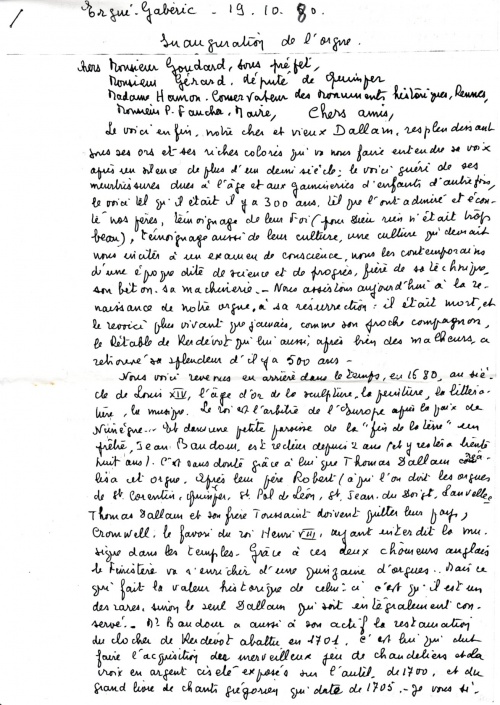 Ergué-Gabéric - 19.10.80.
Inauguration de l'orgue.
chers Monsieur Goudard, sous préfet,
Monsieur Gérard, député de Quimper
Madame Hamon. Conservateur des Monuments historiques, Rennes,
Monsieur P. Faucher, Maire, Chers amis,
Le voici enfin, notre cher et vieux Dallam, resplendissant
sous ses ors et ses riches coloris qui va nous faire entendre sa voix
après un silence de plus d'un demi siècle: le voici guéri de ses
meurtrissures dues à l'âge et aux gamineries d'enfants d'autrefois,
le voici tel qu'il était il y a 300 ans, tel que l'ont admiré et écou-
té nos pères, témoignage de leur foi (pour Dieu rien n'était trop
beau), témoignage aussi de leur culture, une culture qui devrait
nous inciter à un examen de conscience, nous les contemporains
d'une époque dite de science et de progrès, fière de sa technique,
son béton. sa machinerie.- Nous assistons aujourd'hui à la re-
naissance de notre orgue, à sa résurrection: il était mort, et
le revoici plus vivant que jamais, comme son proche compagnon,
le Rétable de Kerdévot qui lui aussi, après bien des malheurs, a
retrouvé sa splendeur d'il y a 500 ans -
Nous voici revenus en arrière dans le temps, en 1680, au siè-
cle de Louis XIV, l'âge d'or de la sculpture, la peinture, la littéra-
ture, la musique. Le roi est l'arbitre de l'Europe après la paix de
Nimègue... Et dans une petite paroisse de la "fin de la terre" un
prêtre, Jean Baudour, est recteur depuis 2 ans (et y restera trente
huit ans). C'est sans doute grâce à lui que Thomas Dallam réa-
lisa cet orgue. Après leur père Robert (à qui l'on doit les orgues
de St. Corentin, Quimper, St. Pol de Léon, St. Jean du Doigt, Lanvellec
Thomas Dallam et son frère Toussaint doivent quitter leur pays,
Cromwell, le favori du roi Henri VIII, ayant interdit la mu-
sique dans les temples. Grâce à ces deux chômeurs anglais
le Finistère va s'enrichir d'une quinzaine d'orgues.. Mais ce
qui fait la valeur historique de celui-ci c'est qu'il est un
des rares, sinon le seul Dallam qui soit intégralement con-
servé.- Mr Baudour a aussi à son actif la restauration
du clocher de Kerdévot abattu en 1701. C'est lui qui dut
faire l'acquisition des merveilleux jeu de chandeliers et la
croix en argent ciselé exposés sur l'autel, de 1700, et du
grand livre de chants grégorien qui date de 1705 - Je vous si-